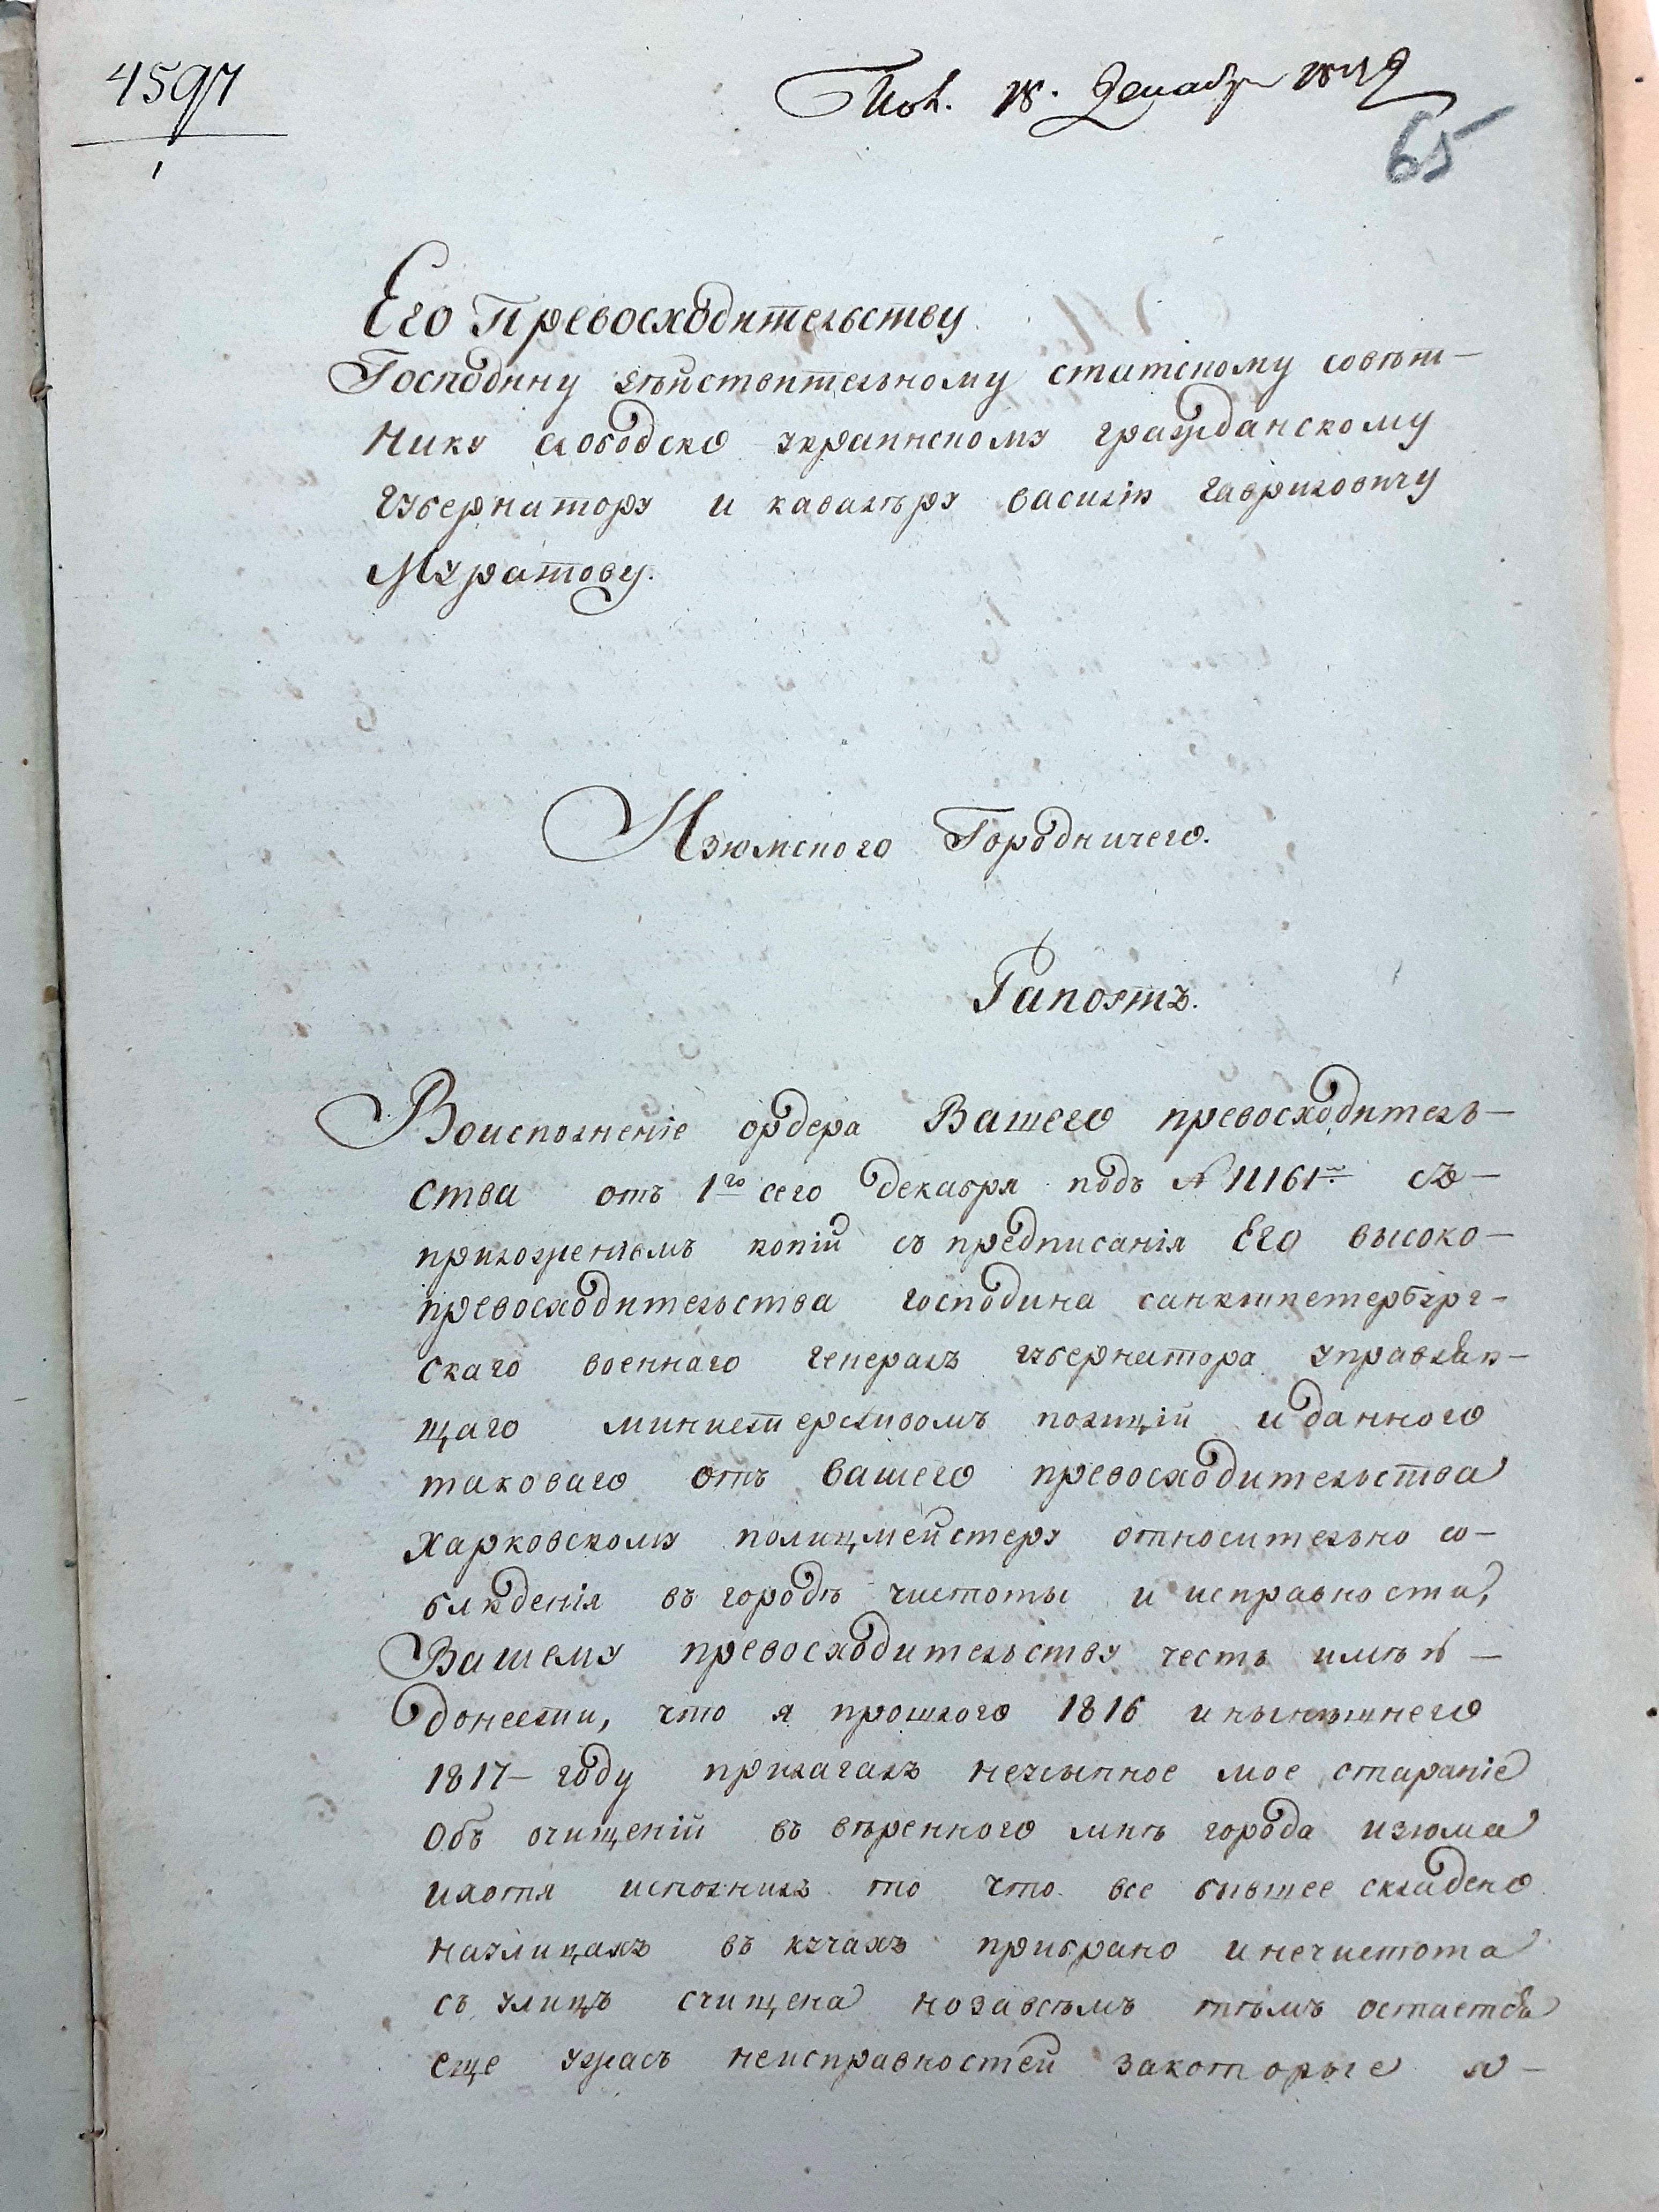 4597
1
Пол. 18. Декабря 1817
65
Его Превосходительству
Господину дѣйствительному статскому совѣт-
нику слободско украинскому гражданскому
губернатору и кавалѣру василію гавриловичу
Муратову.
Изюмского Городничего.
Рапортъ.
Воисполненіе ордера Вашего превосходитель-
ства отъ 1го сего декабря подъ № 11161м съ-
приложеніемъ копіи съ предписанія Его высоко-
превосходительства господина санктпетербург-
скаго военнаго генералъ губернатора управляю-
щаго министерствомъ полиціи и данного
таковаго отъ вашего превосходительства
харковскому полицмейстеру относительно со-
блюденія въ городѣ чистоты и исправности,
Вашему превосходительству честь имѣю-
донести, что я прошлого 1816 и нынѣшнего
1817- году прилагалъ неусыпное мое стараніе
объ очищеніи въ вѣренного мнѣ города изюма
ихотя исполнилъ то что все бывшее складено
наулицахъ въ кучахъ прибрано инечистота
съ улицъ счищена нозавсѣмъ тѣмъ остается
еще ужасъ неисправностей закоторые я-